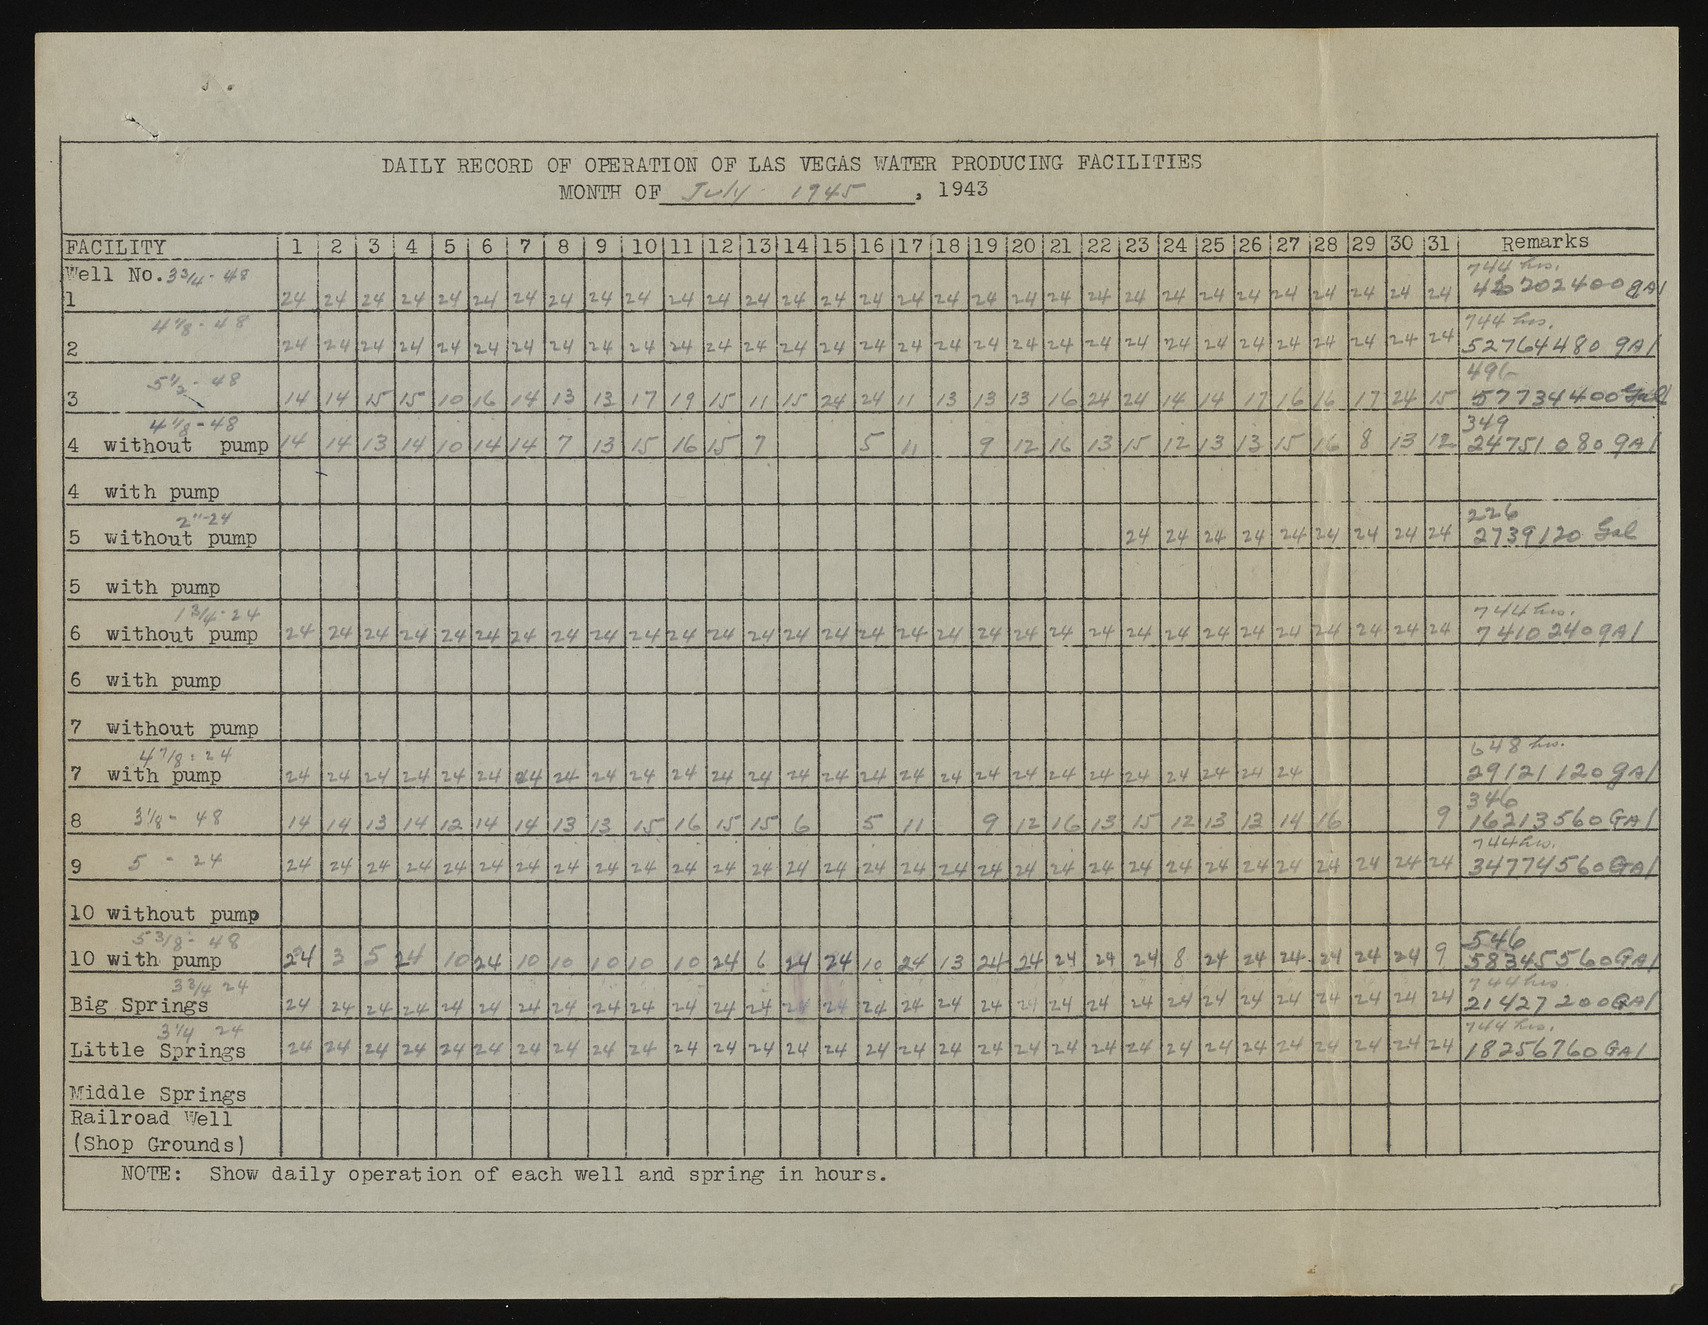 DAILY RECORD OF OPERATION OF LAS VEGAS WATER PRODUCING FACILITIES
MONTH OF July - 1945, 1943
FACILITY 1 2 3 4 5 6 7 8 9 10 11 12 13 14 15 16 17 18 19 20 21 22 23 24 25 26 27 28 29 30 31 Remarks
Well No. 3 3/4 - 48 744 hrs.
1 24 24 24 24 24 24 24 24 24 24 24 24 24 24 24 24 24 24 24 24 24 24 24 24 24 24 24 24 24 24 24 202400 gAl
4 7/8 - 48 744 hrs.
2 24 24 24 24 24 24 24 24 24 24 24 24 24 24 24 24 24 24 24 24 24 24 24 24 24 24 24 24 24 24 24 52764480 gAl
5 1/2 - 48 496
3 14 14 15 15 10 16 14 13 13 17 19 15 11 15 24 24 11 13 13 13 16 24 24 14 14 17 16 16 17 24 15 57734400 Gal
4 1/8 - 48 349
4 without pump 14 14 13 14 10 14 14 7 13 15 16 15 7 5 11 9 12 16 13 15 12 13 13 15 16 8 13 12 24751080 gAl
4 with pump
2" - 24 226
5 without pump 24 24 24 24 24 24 24 24 24 2739120 Gal
5 with pump
1 3/4 - 24 744 hrs.
6 without pump 24 24 24 24 24 24 24 24 24 24 24 24 24 24 24 24 24 24 24 24 24 24 24 24 24 24 24 24 24 24 24 7410240 gAl
6 with pump
7 without pump
4 7/8 : 24 648 hrs.
7 with pump 24 24 24 24 24 24 24 24 24 24 24 24 24 24 24 24 24 24 24 24 24 24 24 24 24 24 24 29121120 gAl
346
8 3 1/8 - 48 14 14 13 14 12 14 14 13 13 15 16 15 15 6 5 11 9 12 16 13 15 12 13 13 14 16 9 16213560 GAl
744 hrs.
9 5 - 24 24 24 24 24 24 24 24 24 24 24 24 24 24 24 24 24 24 24 24 24 24 24 24 24 24 24 24 24 24 24 24 34774560 GAl
10 without pump
5 3/8 - 48 546
10 with pump 24 3 5 24 10 24 10 10 10 10 10 24 6 24 24 10 24 13 24 24 24 24 24 8 24 24 24 24 24 24 9 58345560 GAl
3 3/4 24 744 hrs.
Big Springs 24 24 24 24 24 24 24 24 24 24 24 24 24 24 24 24 24 24 24 24 24 24 24 24 24 24 24 24 24 24 24 21427200 GAl
3 1/4 24 744 hrs.
Little Springs 24 24 24 24 24 24 24 24 24 24 24 24 24 24 24 24 24 24 24 24 24 24 24 24 24 24 24 24 24 24 24 18256760 GAl
Middle Springs
Railroad Well
(Shop Grounds)
NOTE: Show daily operation of each well and spring in hours.